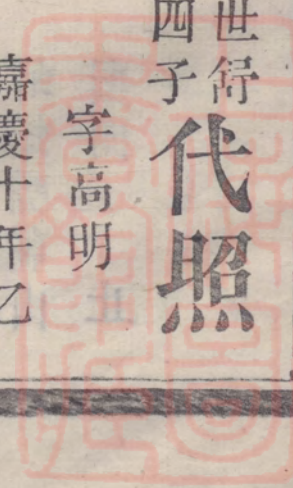 世舒
四子
代照
字高明
嘉慶十年乙